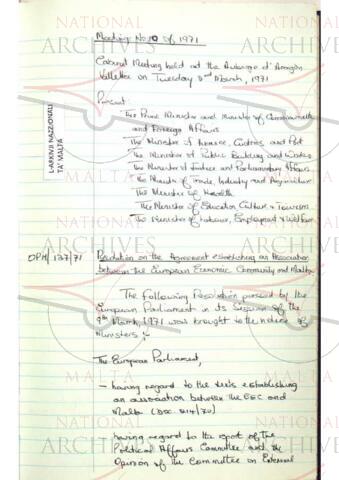 Meeting No 10 of 1971
Cabinet Meeting held at the Auberge d'Aragon
Valletta on Tuesday 2nd March, 1971
Present
The Prime Minister and Minister of Commonwealth
and Foreign Affairs
The Minister of Finance, Customs and Port
The Minister of Public Building and Works
The Minister of Justice and Parliamentary Affairs
The Minister of Trade, Industry and Agriculture
The Minister of Health
The Minister of Education Culture & Tourism
The Minister of Labour, Employment & Welfare
OPM/137/71
Resolution on the Agreement establishing an Association
between the European Economic Community and Malta
The following Resolution passed by the
European Parliament in its Session of the
9th March, 1971 was brought to the notice of
Ministers :-
The European Parliament,
- having regard to the texts establishing
an association between the EEC and
Malta (DOC 214/70)
- having regard to the report of the
Political Affairs Committee and the
Opinion of the Committee on External
L-ARKIVJI NAZZJONALI
TA' MALTA
NATIONAL
ARCHIVES
MALTA